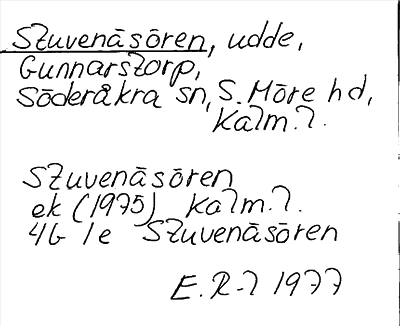 Stuvenäsören, udde,
Gunnarstorp,
Söderåkra sn, S. Möre hd,
Kalm. l.
Stuvenäsören
ek (1975) Kalm. l.
4G 1e Stuvenäsören
E. R-l 1977